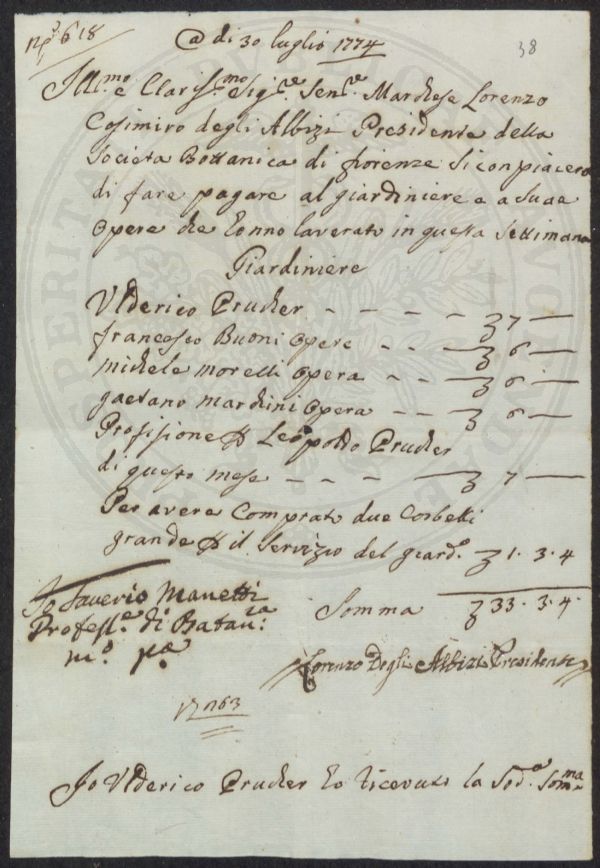 Nº 618
38
@ di 30 luglio 1774
Ill.mo e Clariss.mo Sig.re Sen.re Marchese Lorenzo
Cosimiro degli Albizi Presidente della
Societa Bottanica di fiorenze Si conpiacera
di fare pagare al giardiniere e a Suae
Opere che honno laverato in questa Settimana
Giardiniere
Vlderico Prucher - - - - 7 —
francesco Buoni Opere - - — 6 —
michele morelli Opera - - — 6 —
gaetano marchini Opera - - — 6 —
Profisione Leopoldo Prucher
di questo mese - - - - — 7 —
Per avere Comprato due Corbelli
grande il Servizio del giard.o 1. 3. 4
Somma 33. 3. 4.
Io Saverio Manetti
Profess.e di Batan.ca
m.o p.a
Lorenzo Degli Albizi Presidente
1763
Jo Vlderico Prucher ho ricevuto la Sod.a Somma
PROSPERITATI PUBLICAE